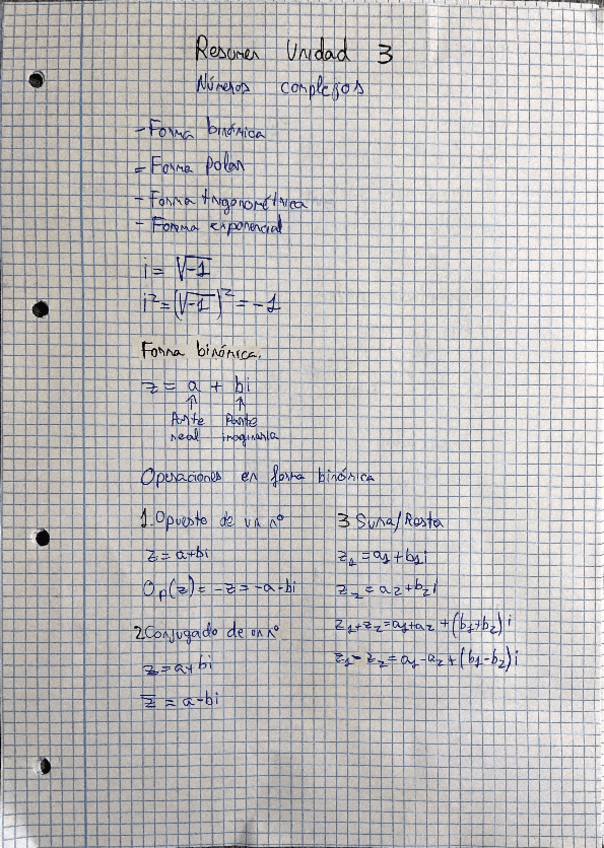 Resumen Unidad 3
Números complejos
- Forma binómica
- Forma polar
- Forma trigonométrica
- Forma exponencial
i = √-1
i² = (√-1)² = -1
Forma binómica.
z = a + bi
↑ ↑
Parte real
Parte imaginaria
Operaciones en forma binómica
1. Opuesto de un nº
z = a+bi
Op(z) = -z = -a-bi
2 Conjugado de un nº
z = a+bi
z̅ = a-bi
3 Suma/Resta
z₁ = a₁+b₁i
z₂ = a₂+b₂i
z₁+z₂ = a₁+a₂ + (b₁+b₂)i
z₁-z₂ = a₁-a₂+(b₁-b₂)i